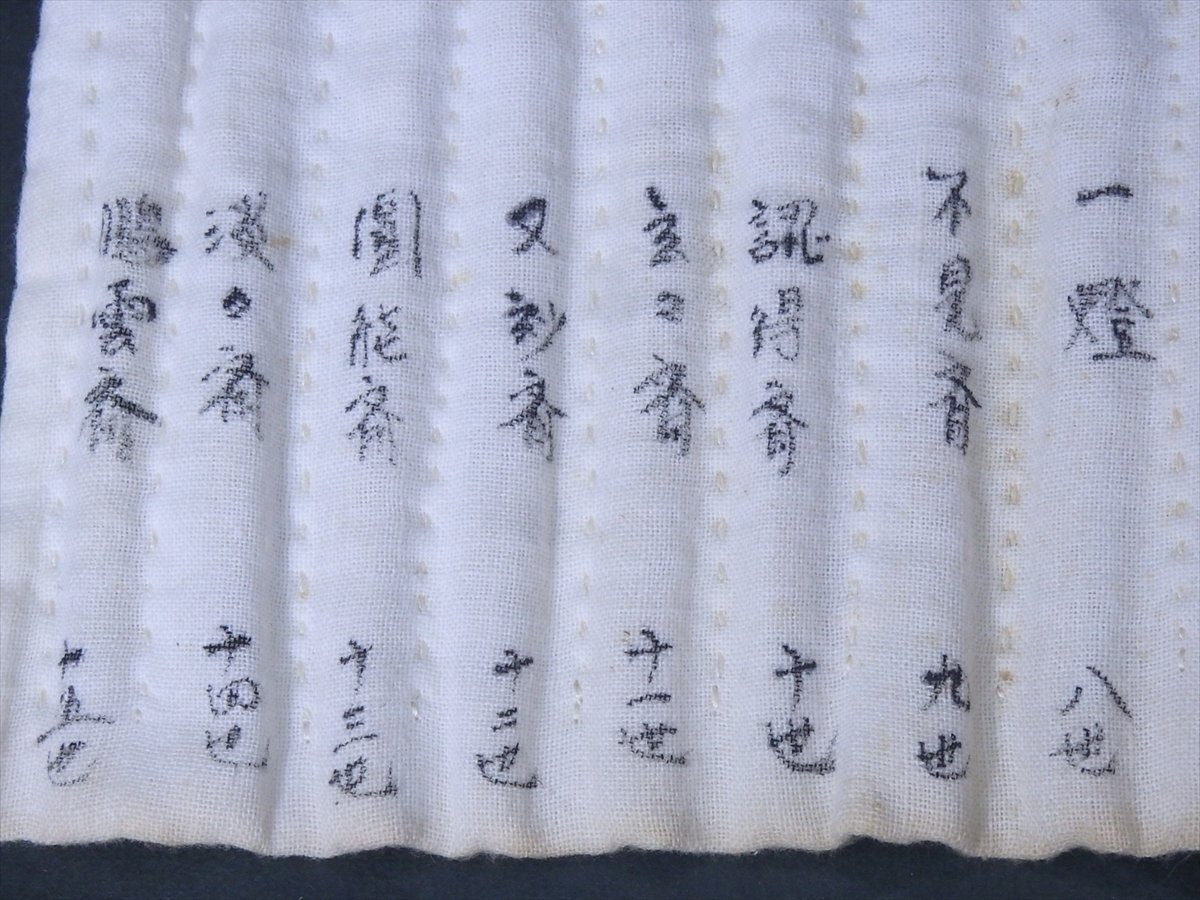 一燈 八世
不見斎 九世
認得斎 十世
玄々斎 十一世
又玅斎 十二世
圓能斎 十三世
淡々斎 十四世
鵬雲斎 十五世